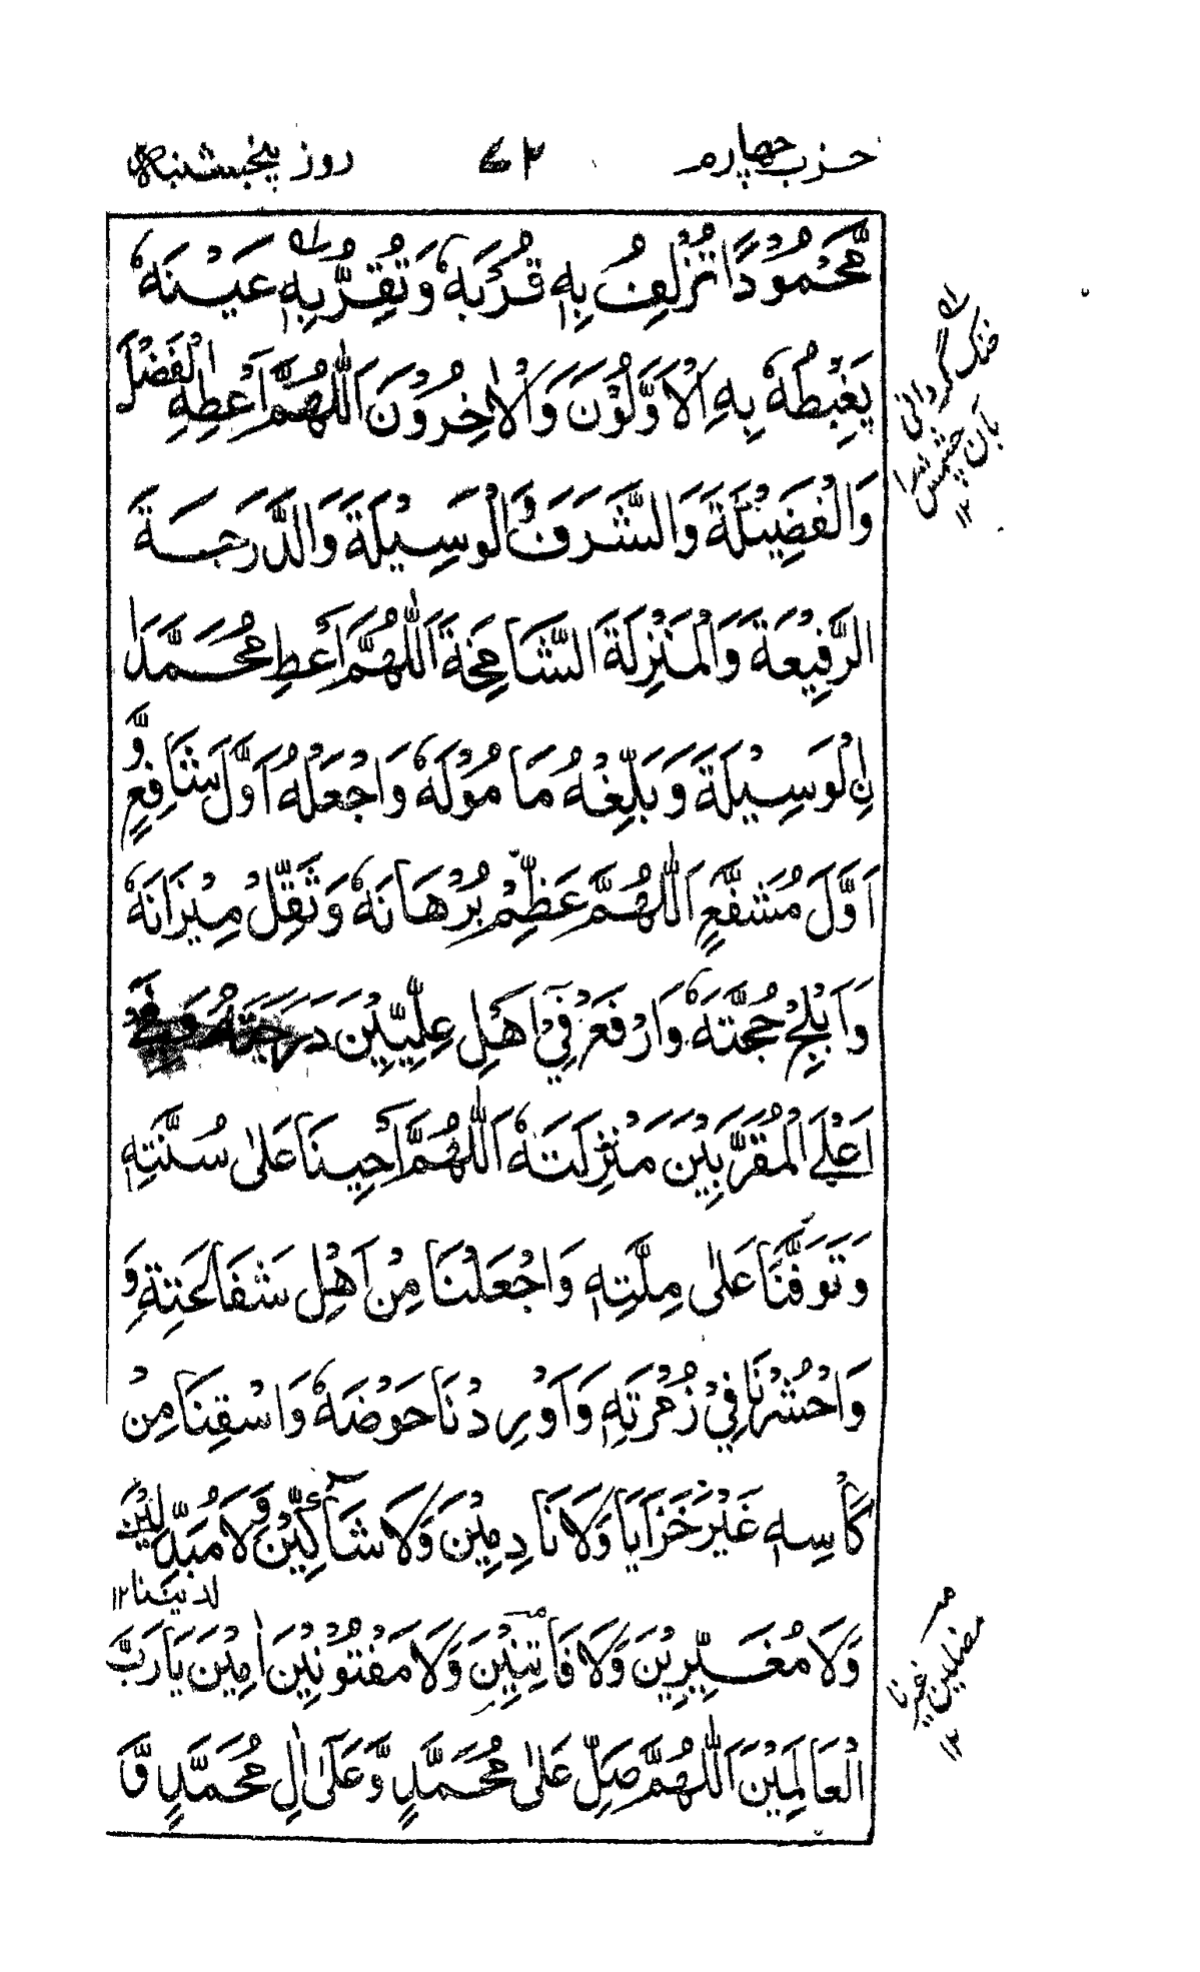 حزب چهارم ۷۲ روز پنجشنبه
مَّحْمُوْدًا تُزْلِفُ بِهٖ قُرْبَهٗ وَتُقِرُّ بِهٖ عَيْنَهٗ
يَغْبِطُهٗ بِهِ الْاَوَّلُوْنَ وَالْاٰخِرُوْنَ اَللّٰهُمَّ اَعْطِهِ الْفَضْلَ
وَالْفَضِيْلَةَ وَالشَّرَفَ وَالْوَسِيْلَةَ وَالدَّرَجَةَ
الرَّفِيْعَةَ وَالْمَنْزِلَةَ الشَّامِخَةَ اَللّٰهُمَّ اَعْطِ مُحَمَّدَا
نِ الْوَسِيْلَةَ وَبَلِّغْهُ مَامُوْلَهٗ وَاجْعَلْهُ اَوَّلَ شَافِعٍ وَّ
اَوَّلَ مُشَفَّعٍ اَللّٰهُمَّ عَظِّمْ بُرْهَانَهٗ وَثَقِّلْ مِيْزَانَهٗ
وَاَبْلِجْ حُجَّتَهٗ وَارْفَعْ فِيْ اَهْلِ عِلِّيِّيْنَ دَرَجَتَهٗ وَفِيْ
اَعْلَى الْمُقَرَّبِيْنَ مَنْزِلَتَهٗ اَللّٰهُمَّ اَحْيِنَا عَلٰى سُنَّتِهٖ
وَتَوَفَّنَا عَلٰى مِلَّتِهٖ وَاجْعَلْنَا مِنْ اَهْلِ شَفَاعَتِهٖ وَ
وَاحْشُرْنَا فِيْ زُمْرَتِهٖ وَاَوْرِدْنَا حَوْضَهٗ وَاسْقِنَا مِنْ
كَاْسِهٖ غَيْرَ خَزَايَا وَلَا نَادِمِيْنَ وَلَا شَآكِّيْنَ وَلَا مُبَدِّلِيْنَ
لدیننا ۱۲
وَلَا مُغَيِّرِيْنَ وَلَا فَاتِنِيْنَ وَلَا مَفْتُوْنِيْنَ اٰمِيْنَ يَا رَبَّ
الْعَالَمِيْنَ اَللّٰهُمَّ صَلِّ عَلٰى مُحَمَّدٍ وَّعَلٰى اٰلِ مُحَمَّدٍ وَّ
خنک گردانی
بآن چشمش را
۱۲
مضلین غیرنا
۱۲